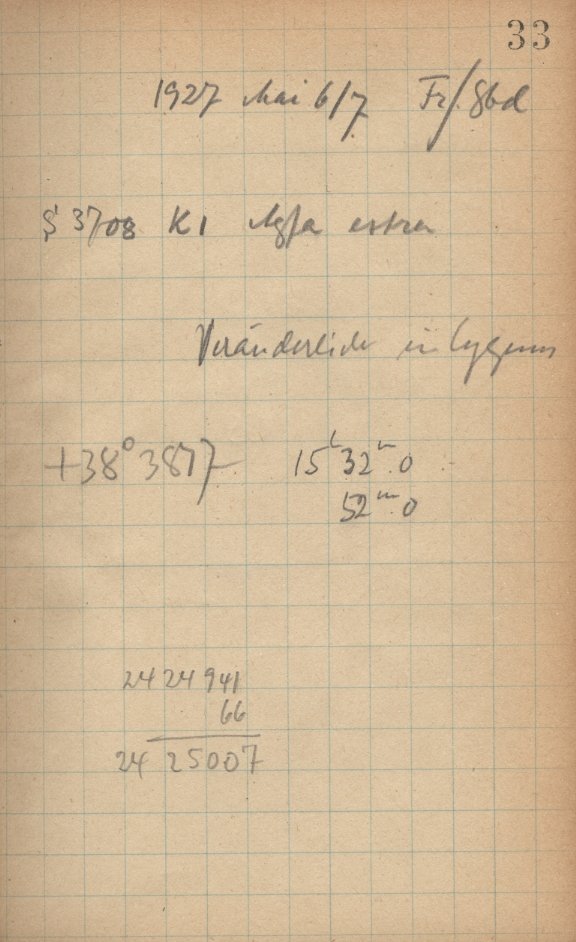 33
1927 Mai 6/7 Fr/Sbd
S 3708 K1 Agfa extra
Veränderliche in Cygnus
+38° 3877 15h 32m.0
52m.0
24 24 941
66
24 25007